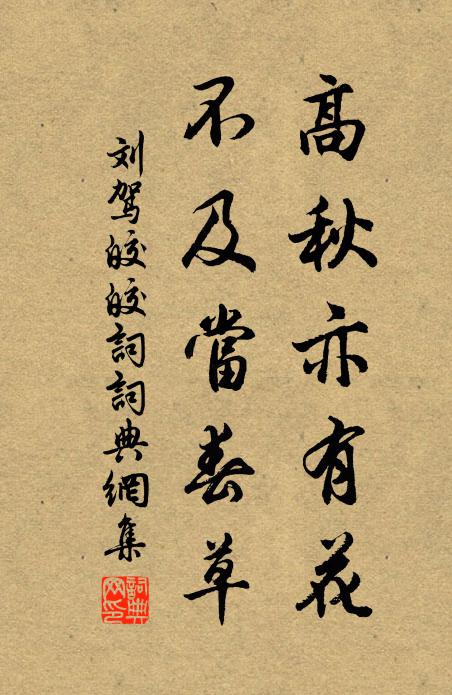 高秋亦有花
不及當春草
刘驾皎皎詞詞典網集
詞典网印